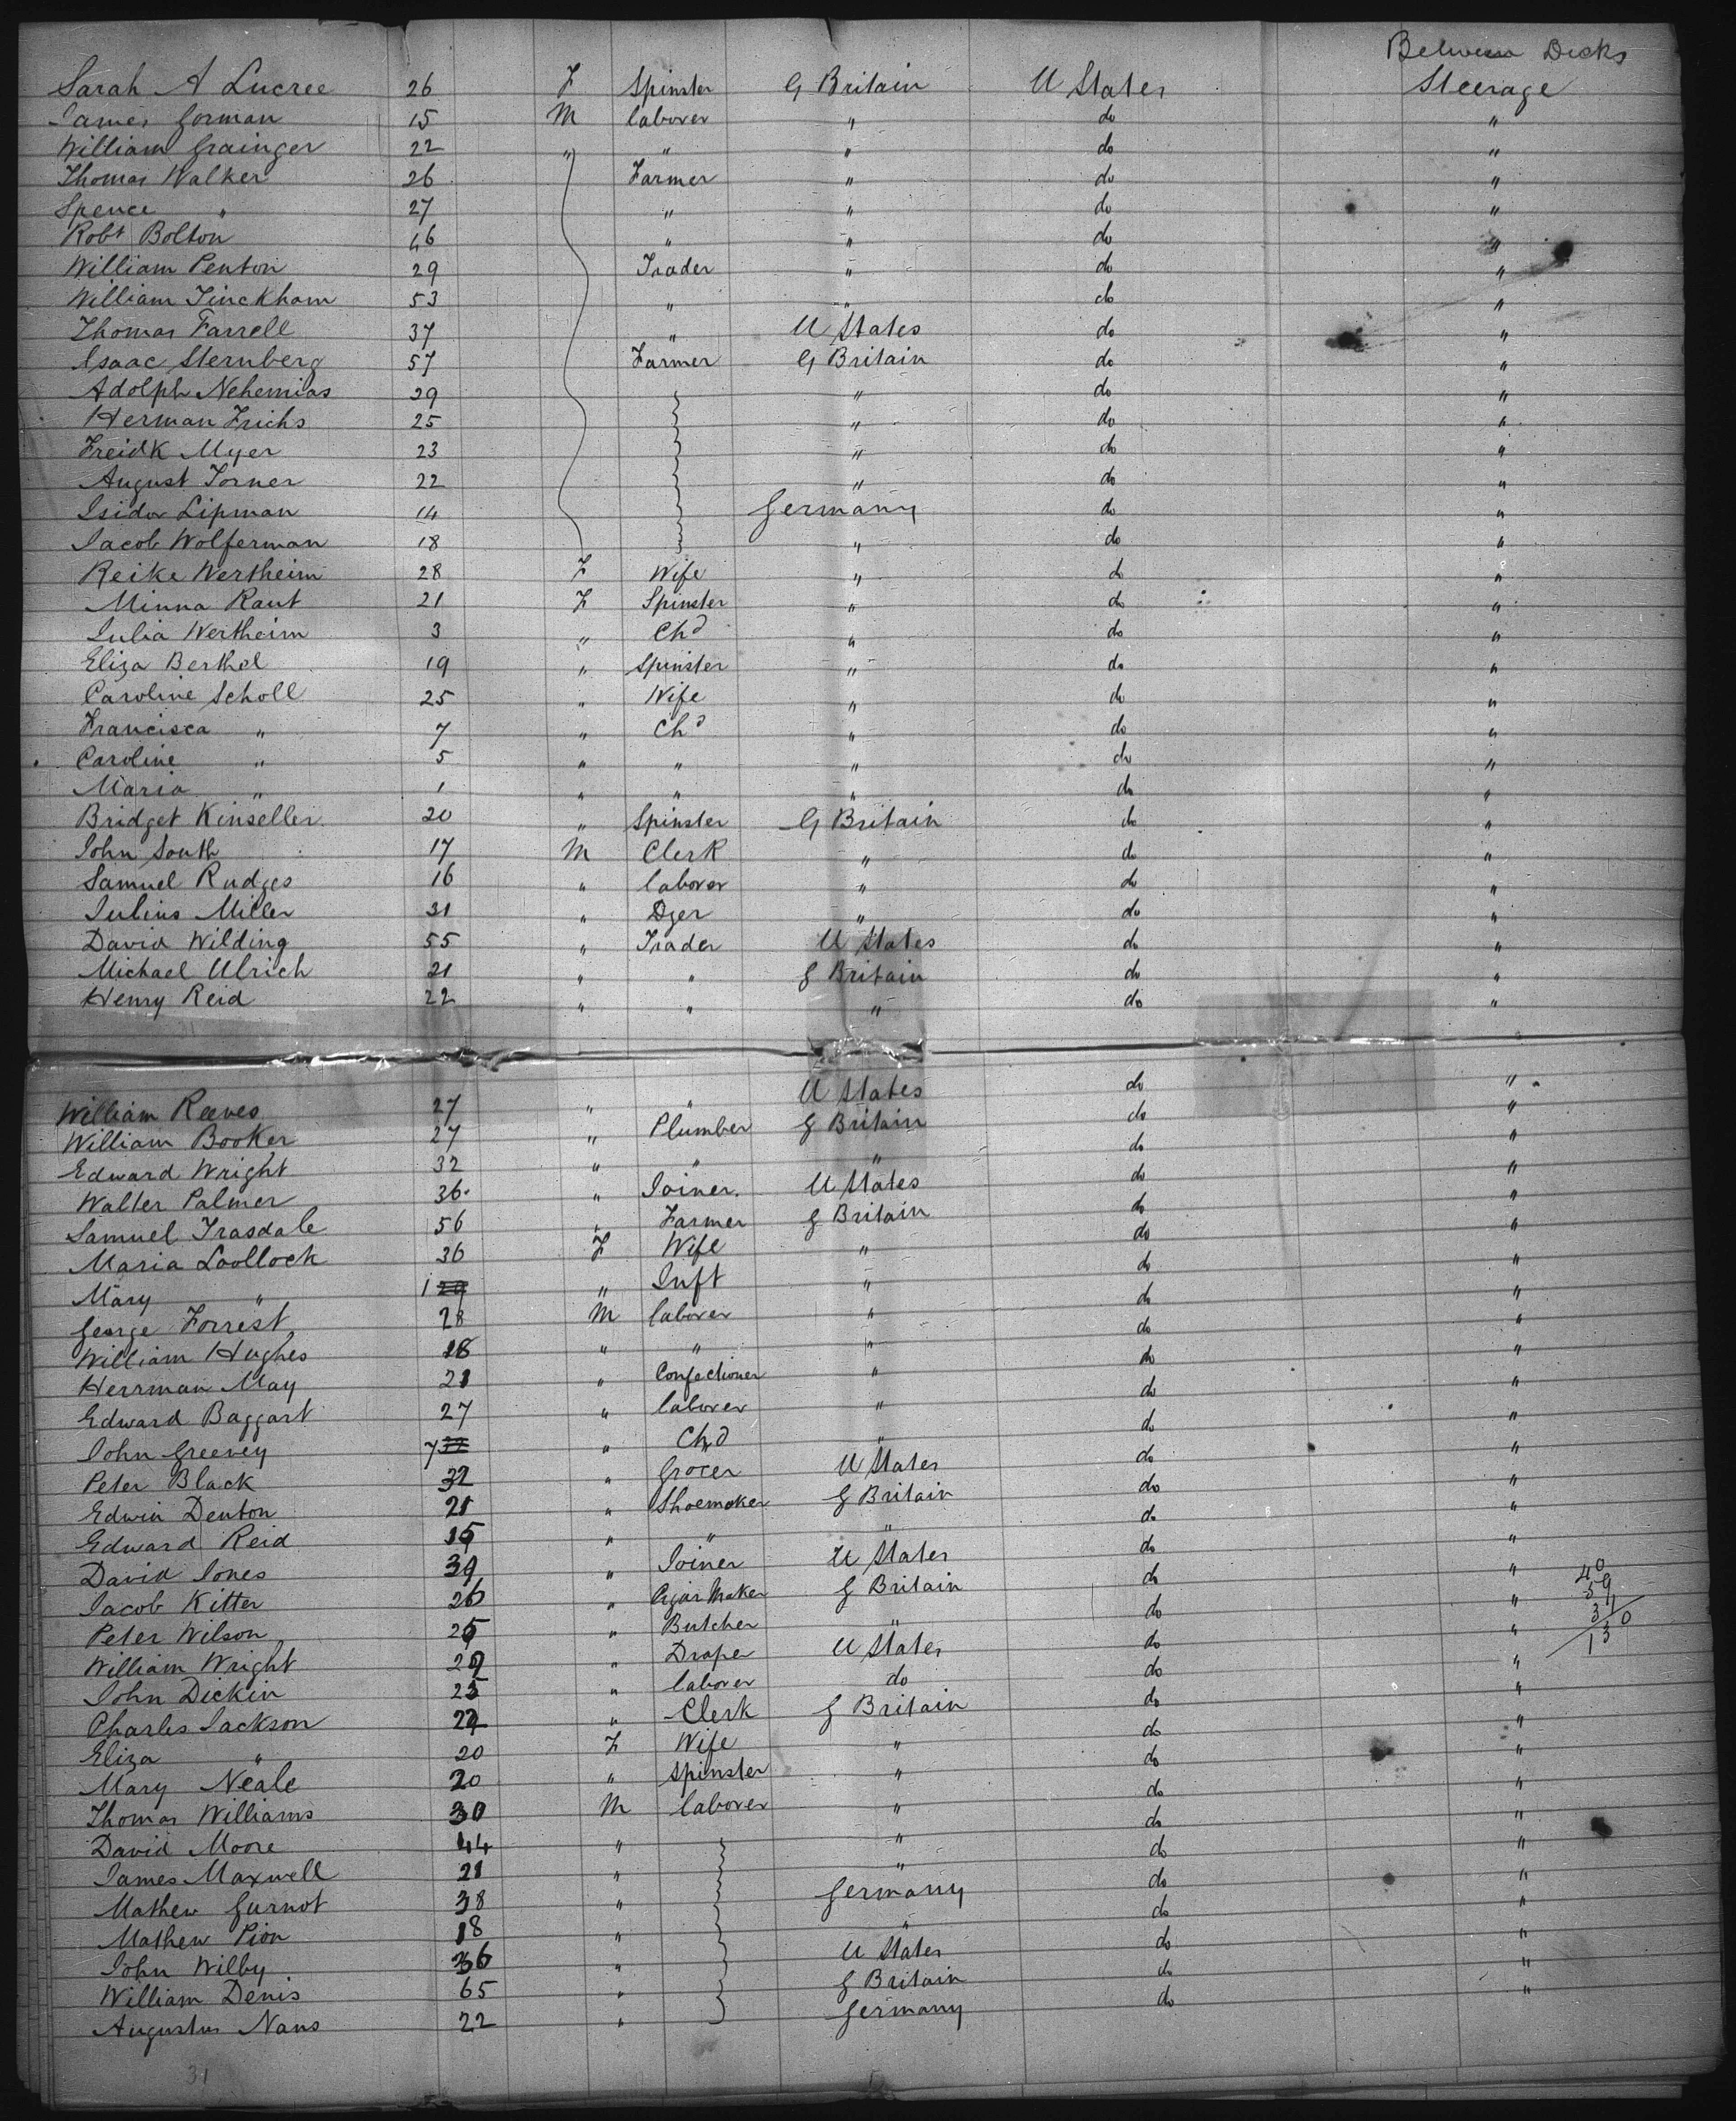 Between Decks
Sarah A Lucree 26 F Spinster G Britain U States Steerage
James Gorman 15 M laborer " do "
William Grainger 22 " " " do "
Thomas Walker 26 Farmer " do "
Spence " 27 " " do "
Robt Bolton 46 " " do "
William Penton 29 Trader " do "
William Tinckham 53 " " do "
Thomas Farrell 37 " U States do "
Isaac Sternberg 57 Farmer G Britain do "
Adolph Nehemias 29 " do "
Herman Frichs 25 " do "
Freidk Myer 23 " do "
August Torner 22 " do "
Isidor Lipman 14 Germany do "
Jacob Wolferman 18 " do "
Reike Wertheim 28 F Wife " do "
Minna Raut 21 F Spinster " do "
Julia Wertheim 3 " Chd " do "
Eliza Berthel 19 " Spinster " do "
Caroline Scholl 25 " Wife " do "
Francisca " 7 " Chd " do "
Caroline " 5 " " " do "
Maria " 1 " " " do "
Bridget Kinseller 20 " Spinster G Britain do "
John South 17 M Clerk " do "
Samuel Rudges 16 " laborer " do "
Julius Miller 31 " Dyer " do "
David Wilding 55 " Trader U States do "
Michael Ulrich 21 " " G Britain do "
Henry Reid 22 " " " do "
William Reeves 27 " " U States do "
William Booker 27 " Plumber G Britain do "
Edward Wright 32 " " " do "
Walter Palmer 36 " Joiner U States do "
Samuel Trasdale 56 " Farmer G Britain do "
Maria Loollock 36 F Wife " do "
Mary " 1 " Inft " do "
George Forrest 28 M laborer " do "
William Hughes 18 " " " do "
Herrman May 21 " Confectioner " do "
Edward Baggart 27 " laborer " do "
John Greevey 7 " Chd " do "
Peter Black 32 " Grocer U States do "
Edwin Denton 21 " Shoemaker G Britain do "
Edward Reid 15 " " " do "
David Jones 39 " Joiner U States do "
Jacob Kitter 26 " Cigar Maker G Britain do "
Peter Wilson 25 " Butcher " do "
William Wright 29 " Draper U States do "
John Dickin 25 " laborer do do "
Charles Jackson 22 " Clerk G Britain do "
Eliza " 20 F Wife " do "
Mary Neale 20 " Spinster " do "
Thomas Williams 30 M laborer " do "
David Moore 44 " " do "
James Maxwell 21 " " do "
Mathew Gurnot 38 " Germany do "
Mathew Pion 18 " " do "
John Wilby 36 " U States do "
William Denis 65 " G Britain do "
Augustus Nans 22 " Germany do "
40
59
31
130
31